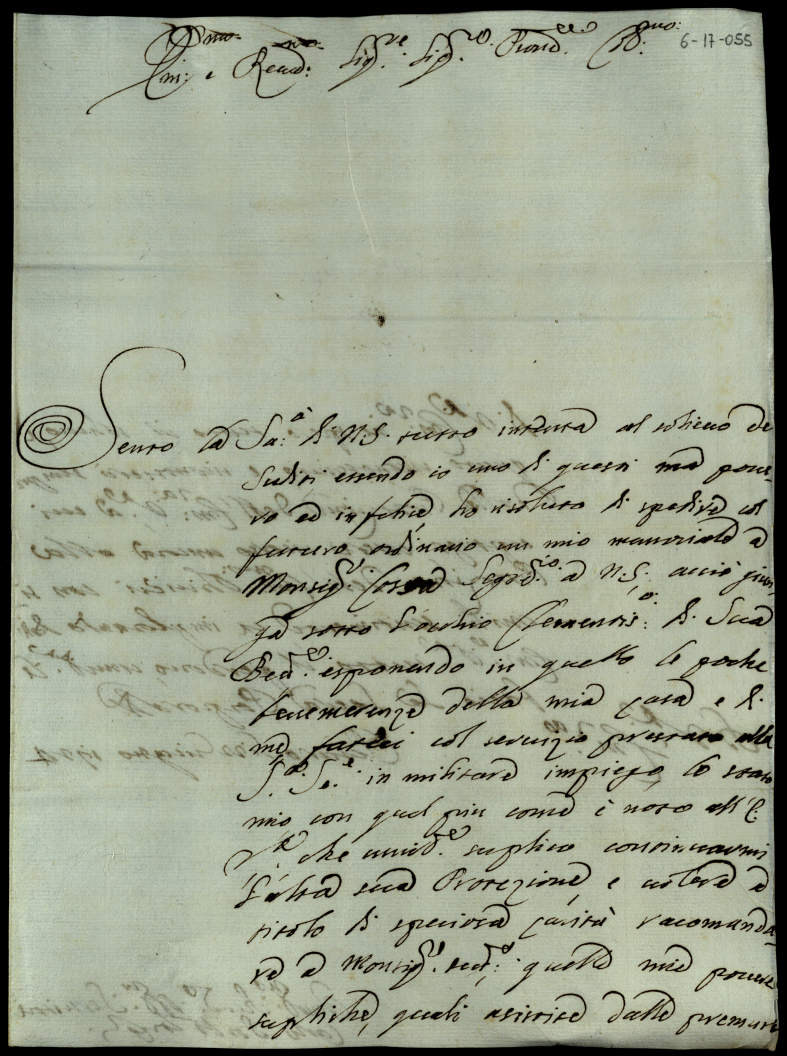 6-17-055
Em:mo e Reud:mo Sig:re Sig:re Pron:e Col:mo
Sento la Sa:tà di N.S. tutto intenta al solieuo de
Suditi essendo io uno di questi mà poue-
ro ed infelice, ho risoluto di spedire col
futuro ordinario un mio memoriale à
Monsig:r Segre:rio di N.S. acciò giun-
ga sotto l'occhio Clementis:o di Sua
Bea:ne esponendo in quello le poche
benemerenze della mia casa e di
me fatteci col seruizio prestato alla
S:ta Se:e in militare impiego, lo stato
mio con qual piu come è noto all'E:
V:ra che umilm:te suplico continuarmi
l'alta sua Protezione, e uolere à
titolo di speciosa carità racomanda-
re à Monsig:r sud:o quelle mie pouere
supliche, quali asistite dalle premure